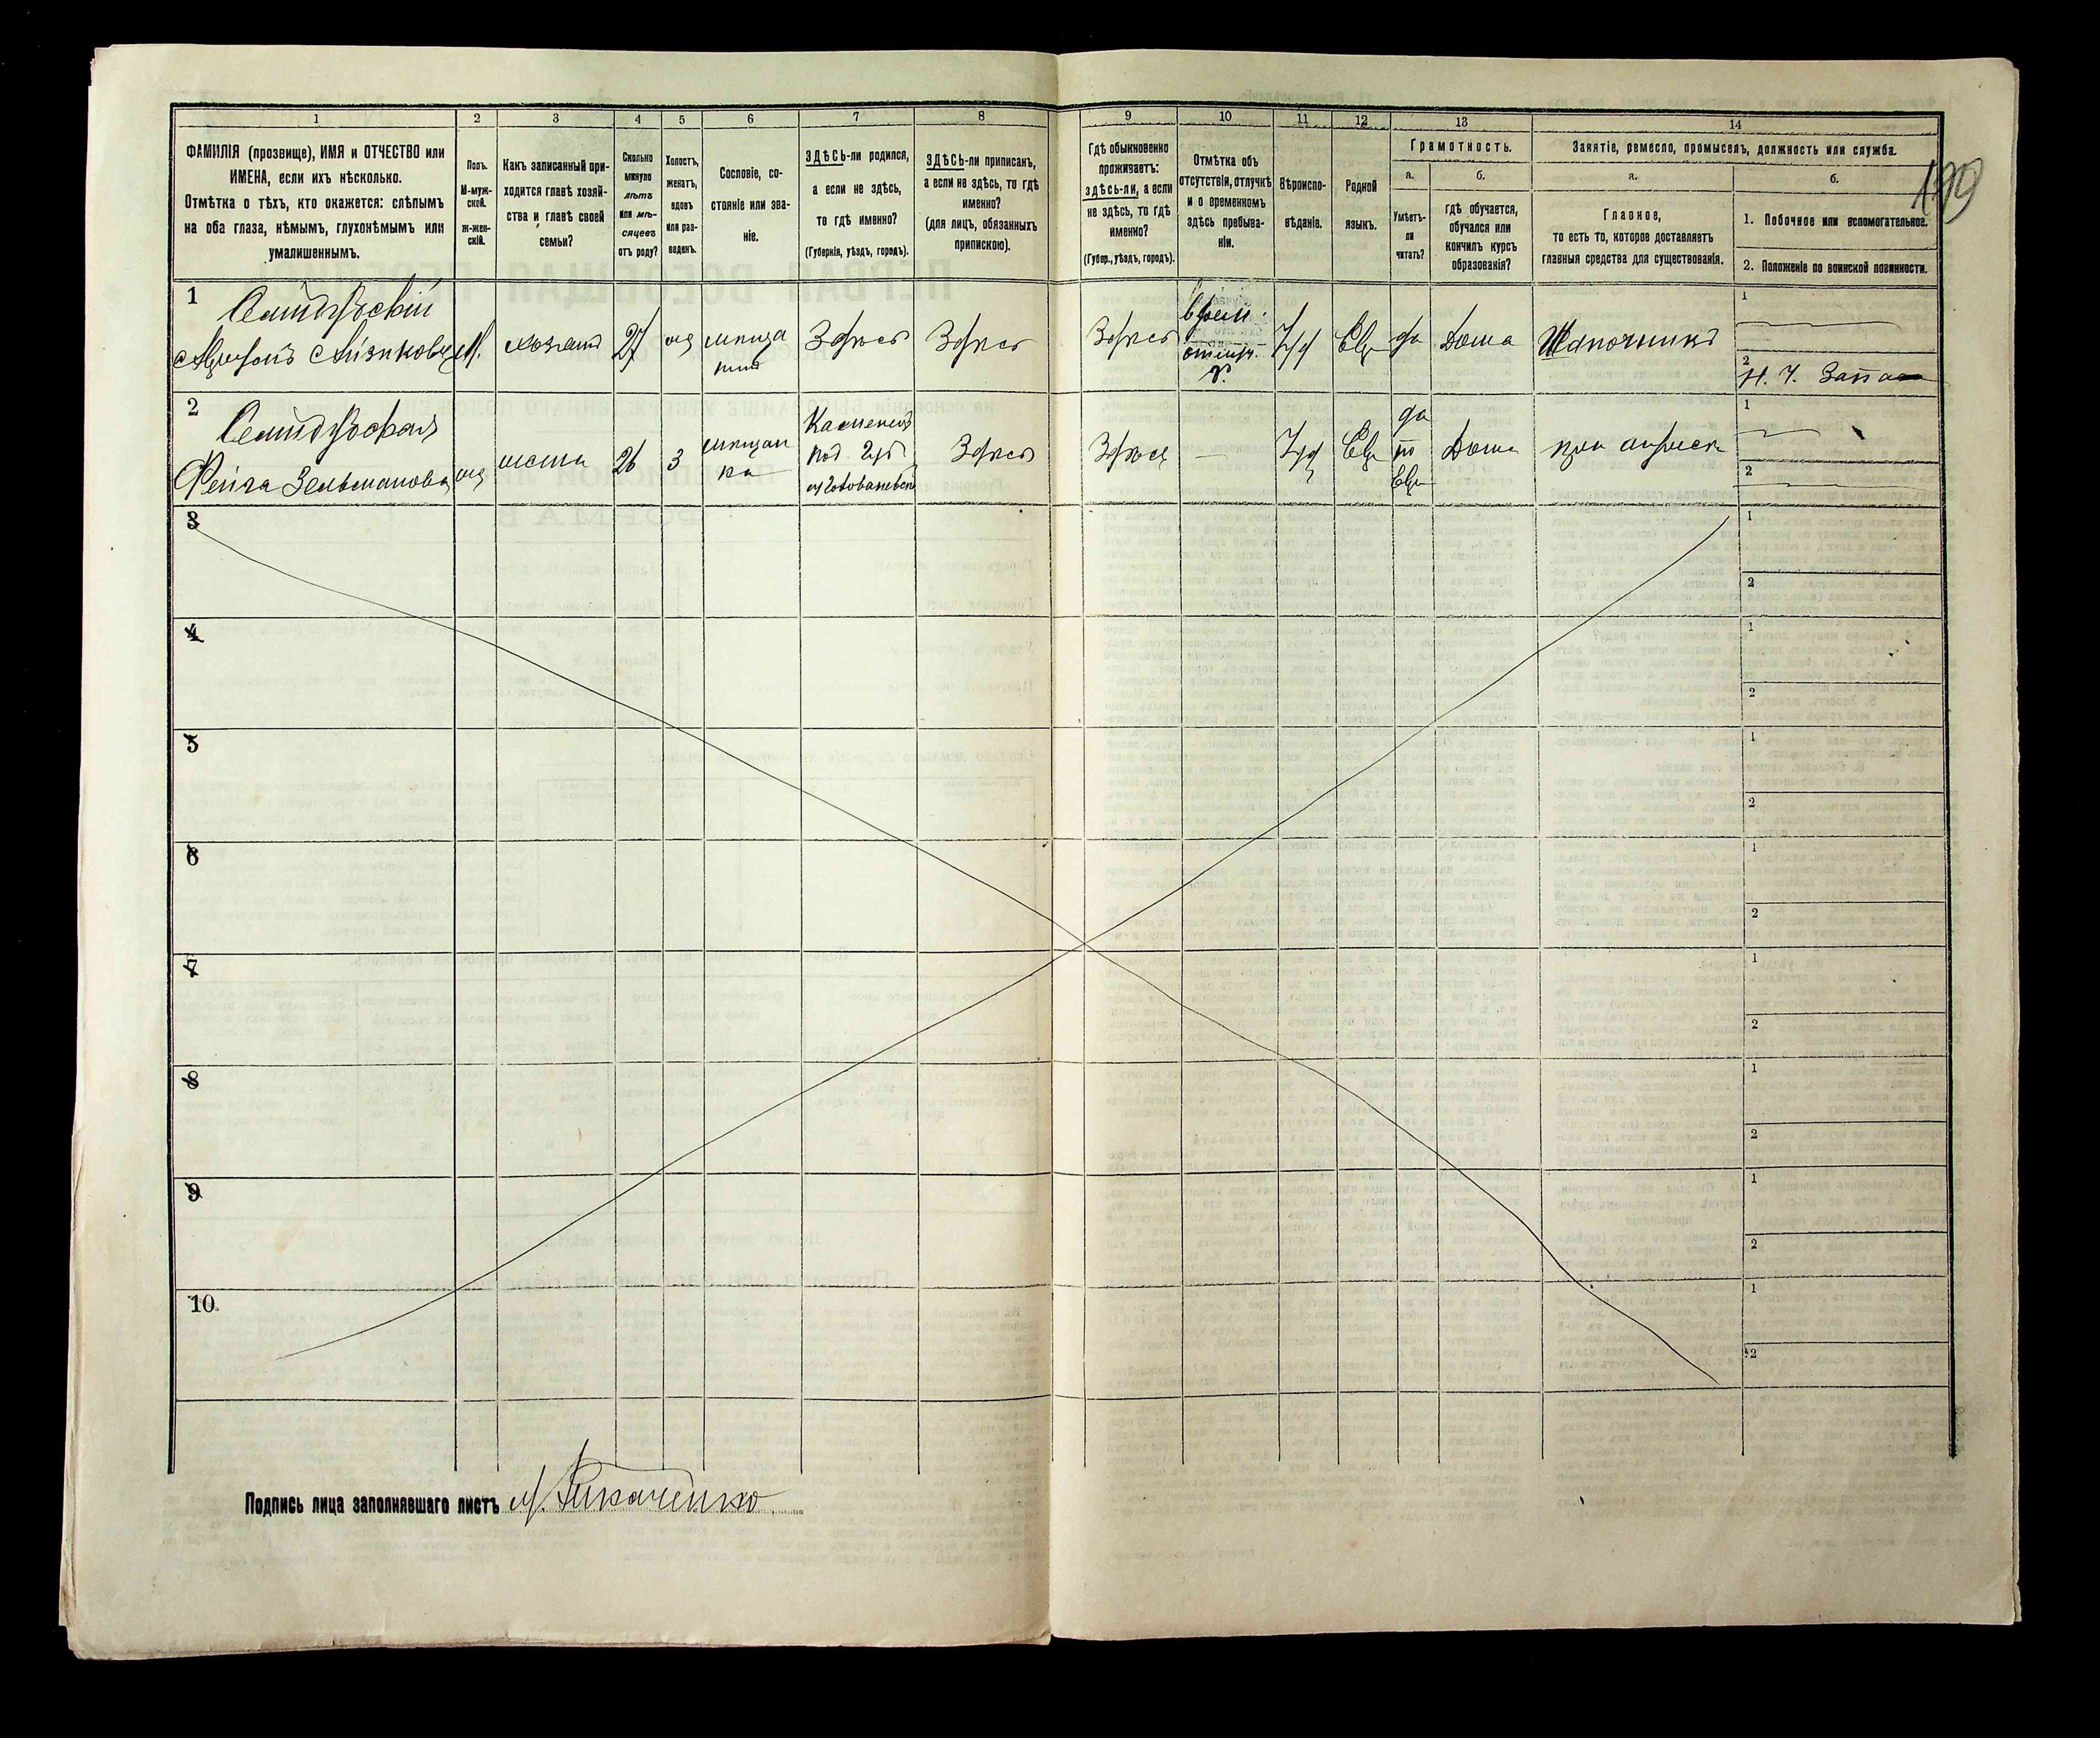 1 2 3 4 5 6 7 8 9 10 11 12 13 14
ФАМИЛІЯ (прозвище), ИМЯ и ОТЧЕСТВО или
ИМЕНА, если ихъ нѣсколько.
Отмѣтка о тѣхъ, кто окажется: слѣпымъ
на оба глаза, нѣмымъ, глухонѣмымъ или
умалишеннымъ.
Полъ.
М-муж-
ской.
Ж-жен-
скій.
Какъ записанный при-
ходится главѣ хозяй-
ства и главѣ своей
семьи?
Сколько
минуло
лѣтъ
или мѣ-
сяцевъ
отъ роду?
Холостъ,
женатъ,
вдовъ
или раз-
веденъ.
Сословіе, со-
стояніе или зва-
ніе.
ЗДѢСЬ-ли родился,
а если не здѣсь,
то гдѣ именно?
(Губернія, уѣздъ, городъ).
ЗДѢСЬ-ли приписанъ,
а если не здѣсь, то гдѣ
именно?
(для лицъ, обязанныхъ
припискою).
Гдѣ обыкновенно
проживаетъ:
здѣсь-ли, а если
не здѣсь, то гдѣ
именно?
(Губер., уѣздъ, городъ).
Отмѣтка объ
отсутствіи, отлучкѣ
и о временномъ
здѣсь пребыва-
ніи.
Вѣроиспо-
вѣданіе.
Родной
языкъ.
Грамотность.
а.
Умѣетъ-
ли
читать?
б.
гдѣ обучается,
обучался или
кончилъ курсъ
образованія?
Занятіе, ремесло, промыселъ, должность или служба.
а.
Главное,
то есть то, которое доставляетъ
главныя средства для существованія.
б.
1. Побочное или вспомогательное.
2. Положеніе по воинской повинности.
199
1
М. хозяинъ 27 жд мѣща
нинъ
Здѣсь Здѣсь Здѣсь
врем.
отлуч.
Іуд Евр да Дома Шапочникъ
1
2
Н. Ч. Запаса
2
Зельмановна
жена 26 З мѣщан
ка
Каменец
Под Губ
Здѣсь Здѣсь — Іуд Евр
да
по
Евр
Дома при
1
2
3 1
2
4 1
2
5 1
2
6 1
2
7 1
2
8 1
2
9 1
2
10. 1
2
Подпись лица заполнявшаго листъ